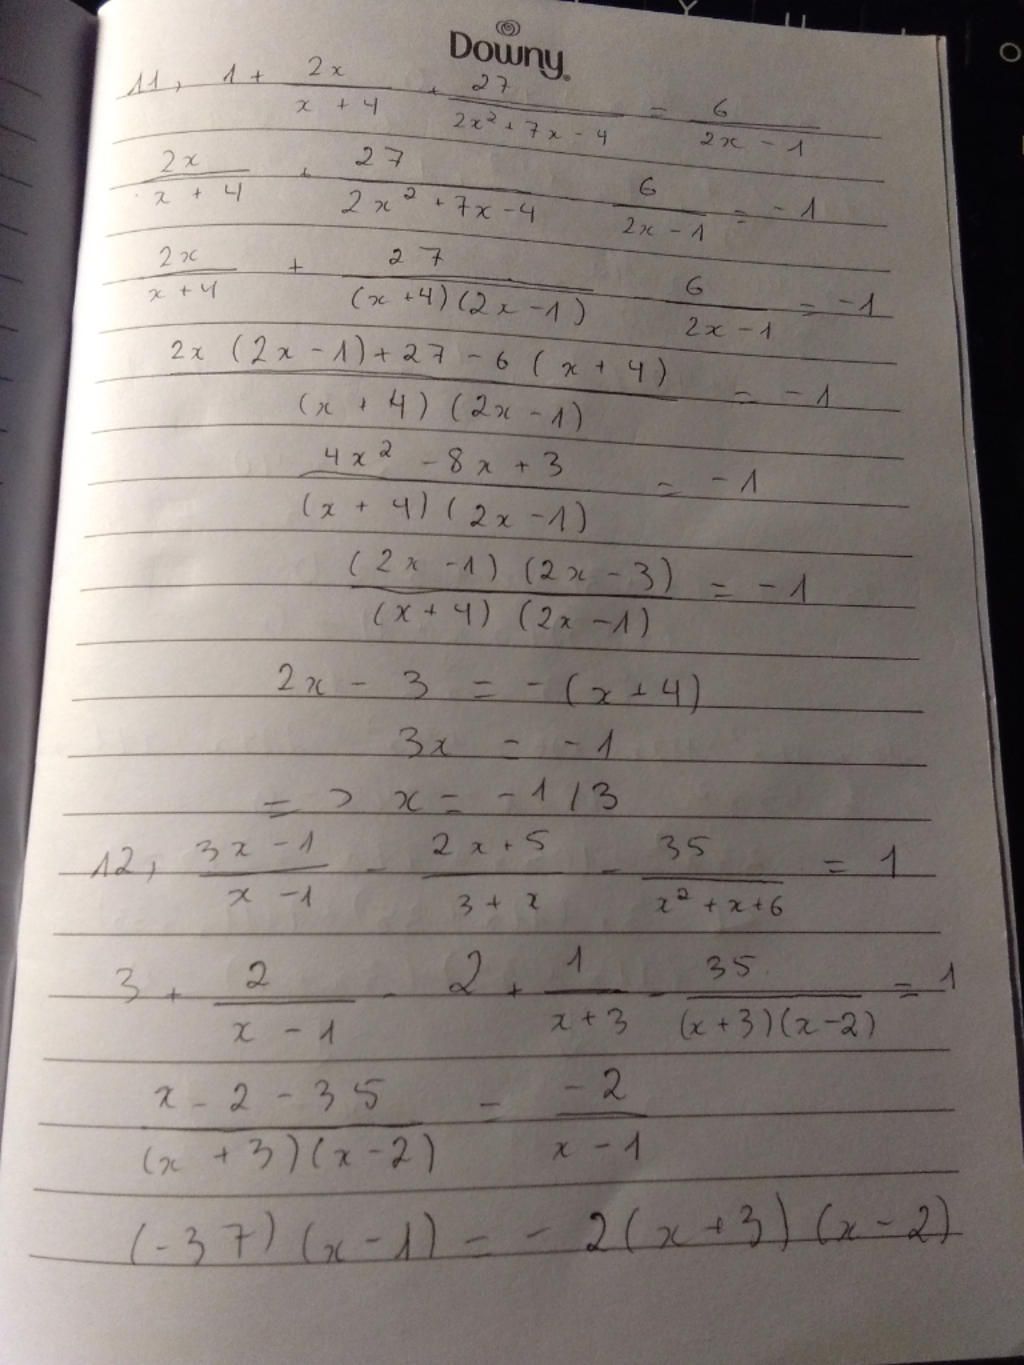 Downy
11, 1 + 2x/(x + 4) + 27/(2x² + 7x - 4) = 6/(2x - 1)
2x/(x + 4) + 27/(2x² + 7x - 4) 6/(2x - 1) = -1
2x/(x + 4) + 27/((x + 4)(2x - 1)) 6/(2x - 1) = -1
(2x (2x - 1) + 27 - 6 (x + 4))/((x + 4) (2x - 1)) = -1
(4x² - 8x + 3)/((x + 4) (2x - 1)) = -1
((2x - 1) (2x - 3))/((x + 4) (2x - 1)) = -1
2x - 3 = - (x + 4)
3x = -1
=> x = -1/3
12, (3x - 1)/(x - 1) - (2x + 5)/(3 + x) - 35/(x² + x + 6) = 1
3 + 2/(x - 1) - 2 + 1/(x + 3) - 35/((x + 3)(x - 2)) = 1
(x - 2 - 35)/((x + 3)(x - 2)) = -2/(x - 1)
(-37) (x - 1) = - 2(x + 3) (x - 2)